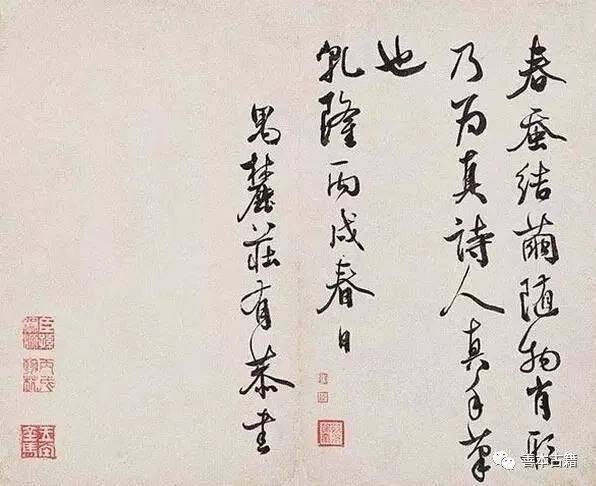 春蚕结繭随物肖形
乃为真詩人真手筆
也
乾隆丙戌春日
禺麓莊有恭書
善本古籍